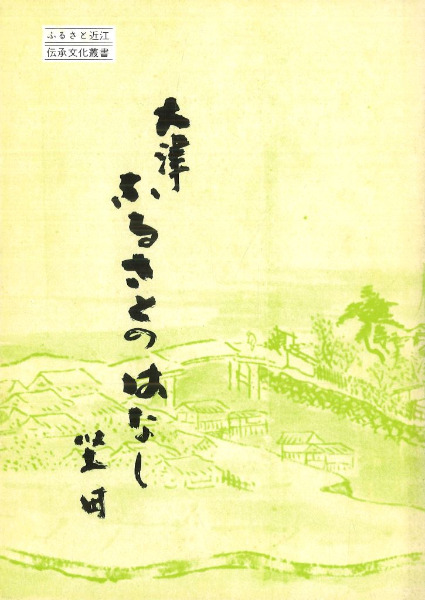 ふるさと近江
伝承文化叢書
大津
ふるさとのはなし